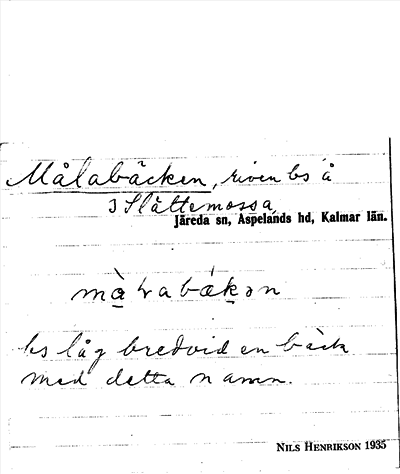 Målabäcken, riven bs å
3 Slättemossa,
Järeda sn, Aspelands hd, Kalmar län.
bs låg bredvid en bäck
med detta namn.
NILS HENRIKSON 1935